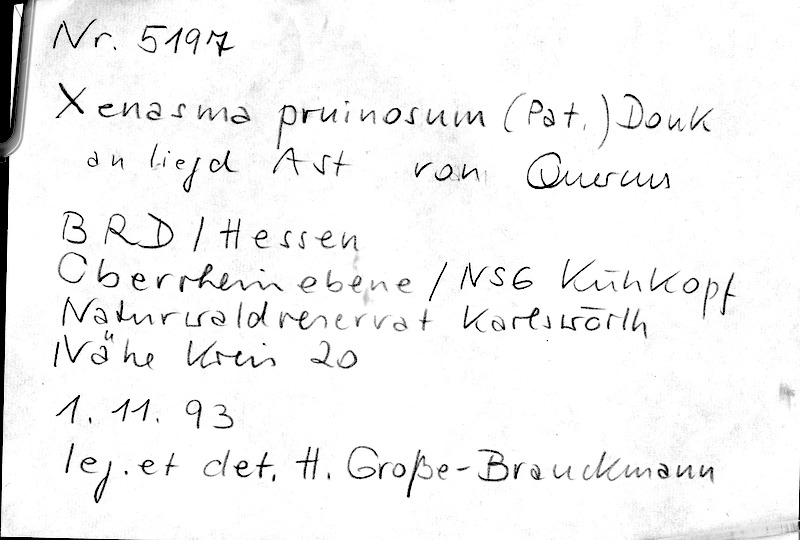 Nr. 5197
Xenasma pruinosum (Pat.) Donk
an liegd Ast von Quercus
BRD / Hessen
Oberrheinebene / NSG Kühkopf
Naturwaldreservat Karlswörth
Nähe Kreis 20
1. 11. 93
leg. et det. H. Große-Brauckmann